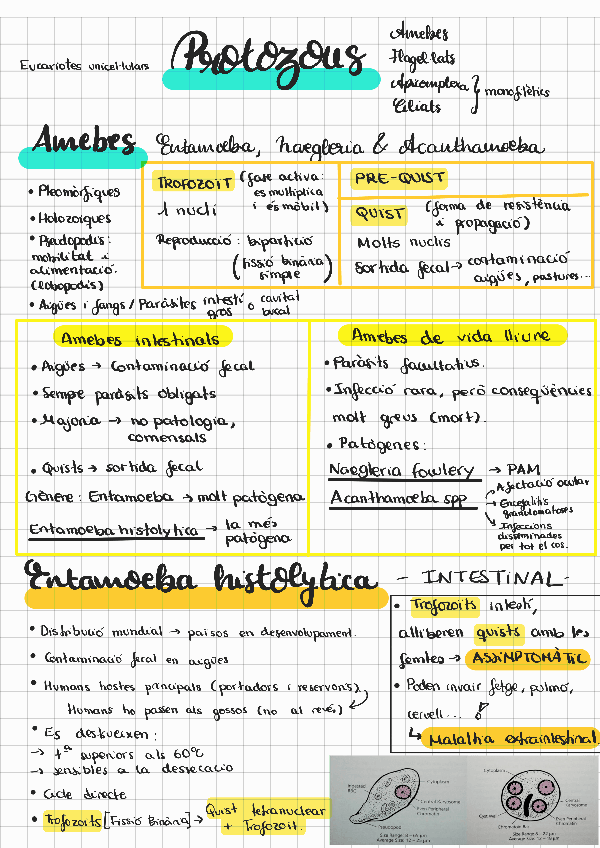 Eucariotes unicel·lulars
Protozous
Amebes
Flagel·lats
Apicomplexa
Ciliats
monofilètics
Amebes Entamoeba, Naegleria & Acanthamoeba
• Pleomòrfiques
• Holozoiques
• Pseudopodis:
mobilitat i
alimentació.
(lobopodis)
• Aigües i fangs / Paràsites intestí gros o cavitat bucal
TROFOZOIT (fase activa:
es multiplica
i és mòbil)
1 nucli
Reproducció: bipartició
(fissió binària
simple)
PRE-QUIST
QUIST (forma de resistència
i propagació)
Molts nuclis
Sortida fecal → contaminació
aigües, pastures...
Amebes intestinals
• Aigües → Contaminació fecal
• Sempre paràsits obligats
• Majoria → no patologia,
comensals
• Quists → sortida fecal
Gènere: Entamoeba → molt patògena
Entamoeba histolytica → la més
patògena
Amebes de vida lliure
• Paràsits facultatius.
• Infecció rara, però conseqüències
molt greus (mort).
• Patògenes:
Naegleria fowlery → PAM
Acanthamoeba spp
→ Afectació ocular
→ Encefalitis
granulomatoses
→ Infeccions
disseminades
per tot el cos.
Entamoeba histolytica - INTESTINAL-
• Distribució mundial → països en desenvolupament.
• Contaminació fecal en aigües
• Humans hostes principals (portadors i reservoris)
Humans ho passen als gossos (no al revés)
• Es destrueixen:
→ tª superiors als 60ºC
→ sensibles a la dessecació
• Cicle directe
• Trofozoits [Fissió Binària] → Quist tetranuclear
+ Trofozoit.
• Trofozoits intestí,
alliberen quists amb les
femtes → ASSIMPTOMÀTIC
• Poden invair fetge, pulmó,
cervell... !
↳ Malaltia extraintestinal
Ingested
RBC
Cytoplasm
Central Karyosome
Even Peripheral
Chromatin
Pseudopod
Cytoplasm
Central
Karyosome
Cyst Wall
Even Peripheral
Chromatin
Chromatoid Bar